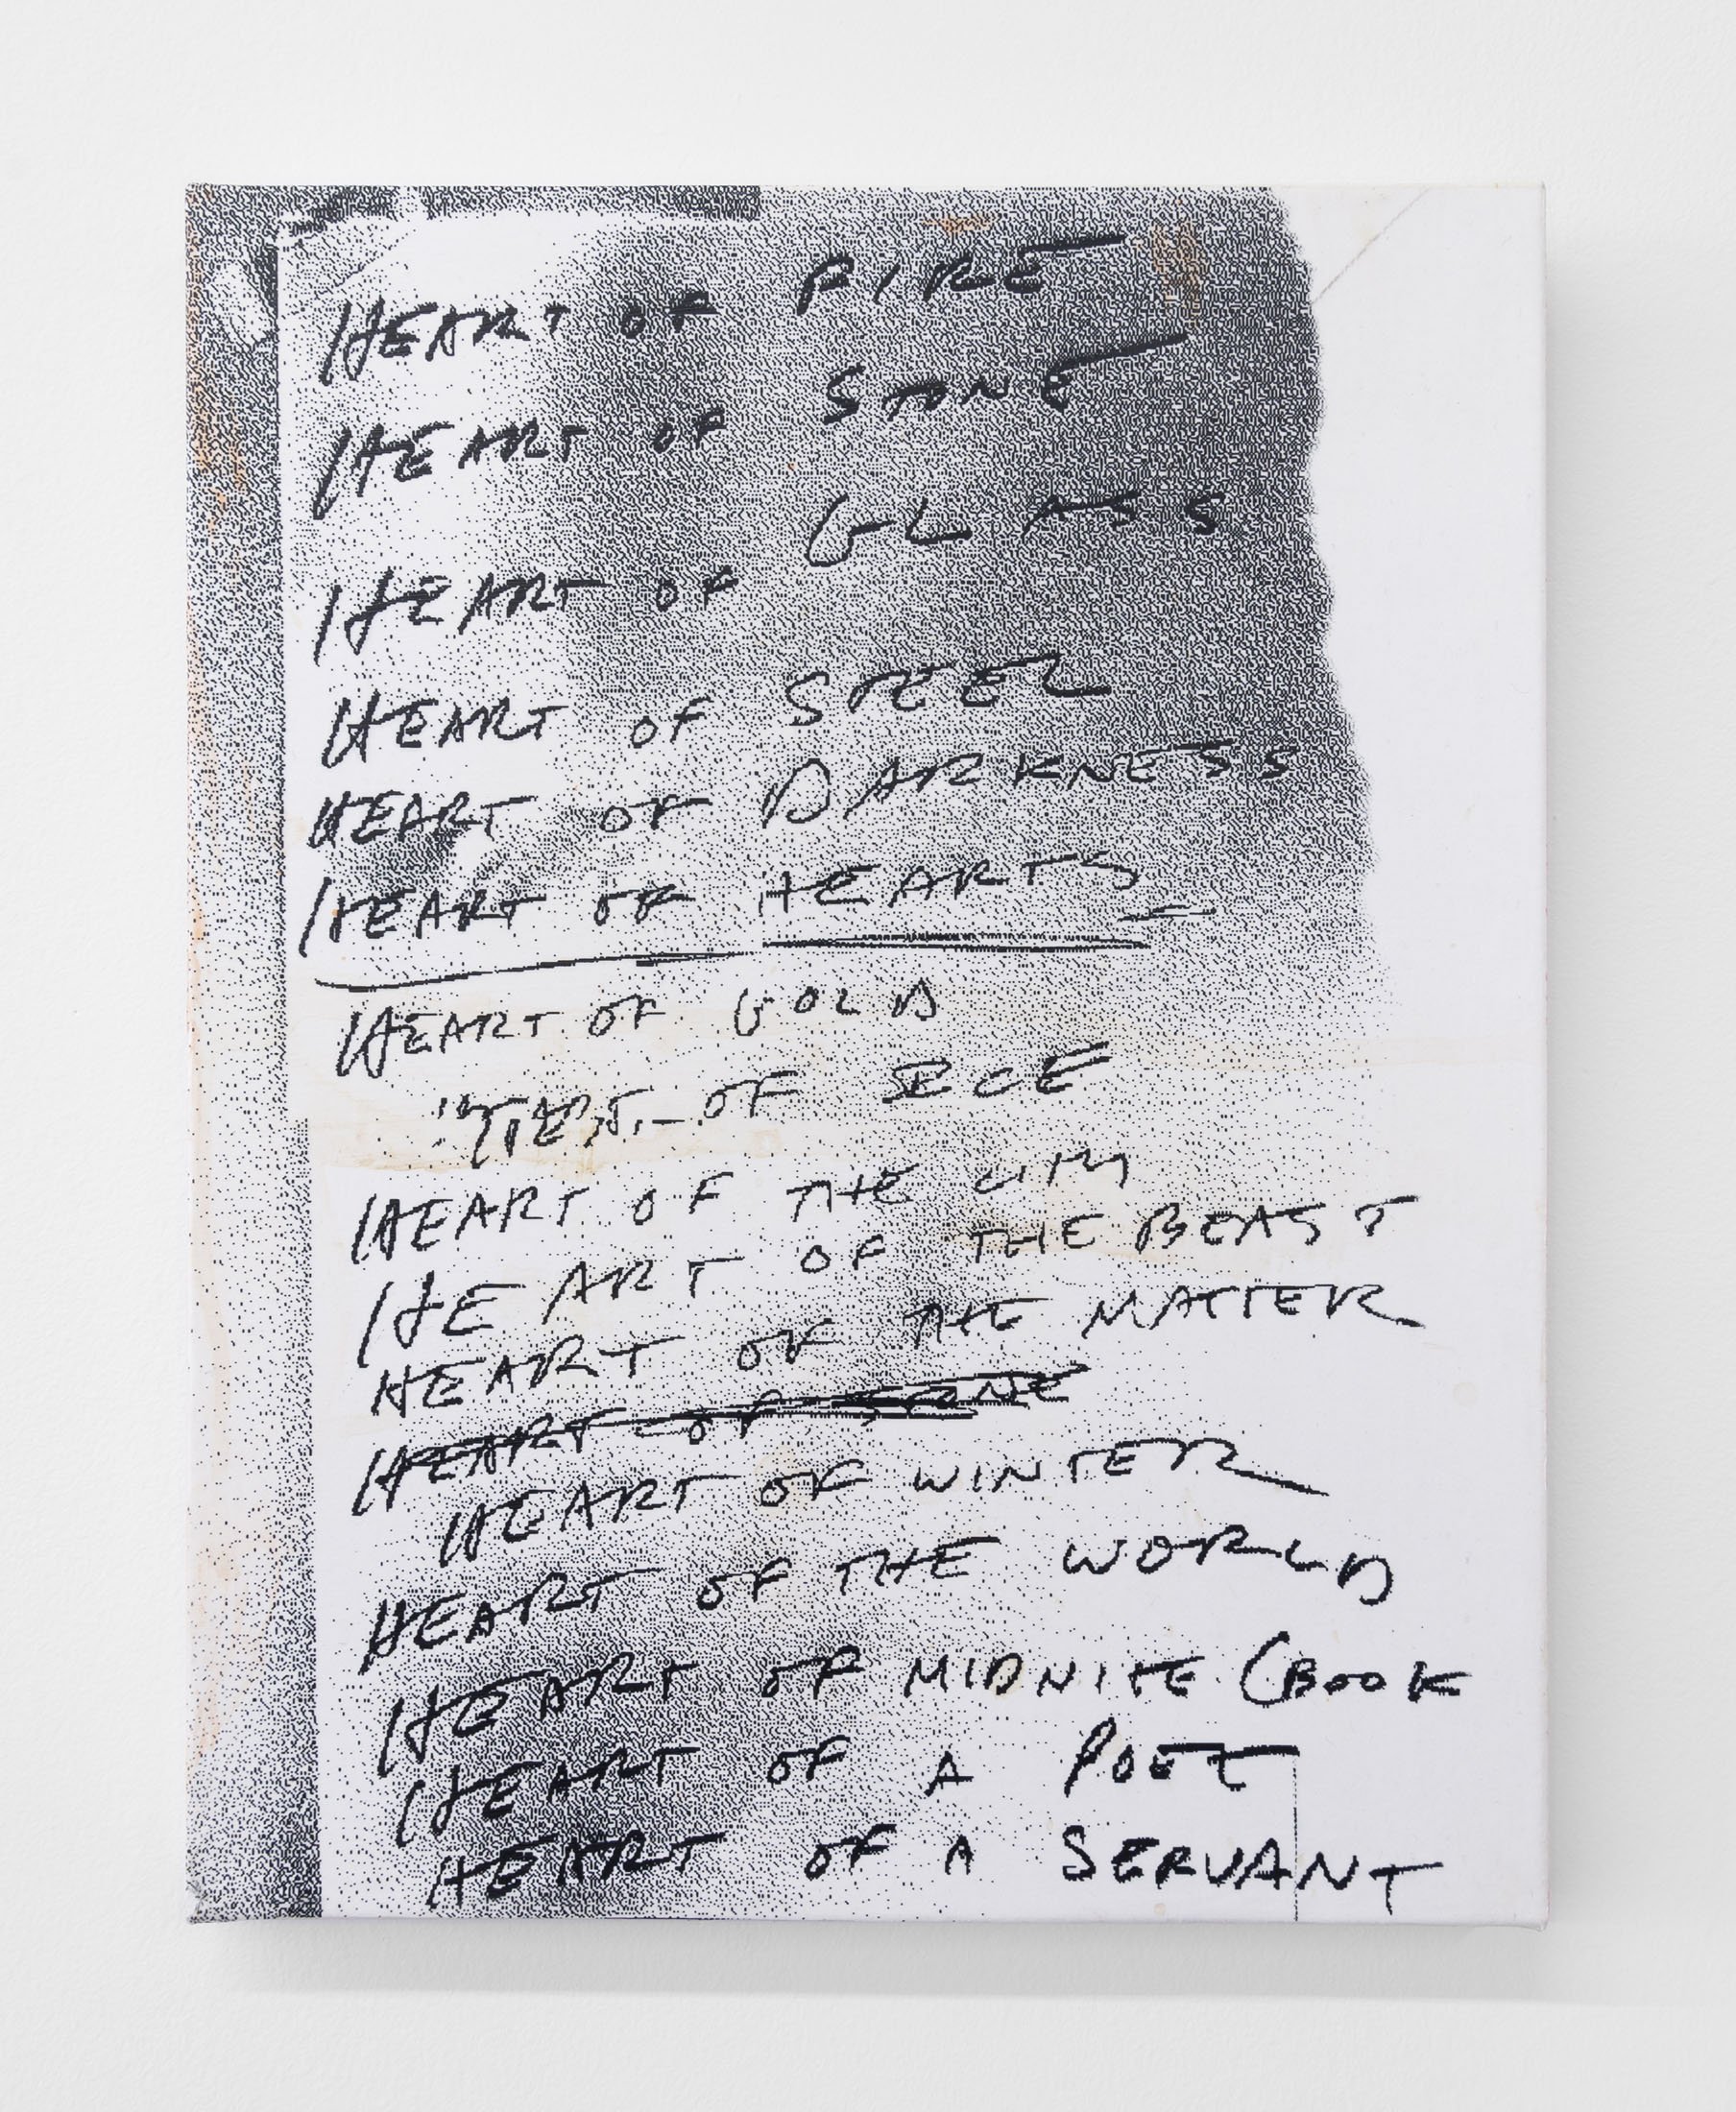 HEART OF FIRE
HEART OF STONE
HEART OF GLASS
HEART OF STEEL
HEART OF DARKNESS
HEART OF HEARTS
HEART OF GOLD
HEART OF ICE
HEART OF THE CITY
HEART OF THE BEAST
HEART OF THE MATTER
HEART OF STONE
HEART OF WINTER
HEART OF THE WORLD
HEART OF MIDNITE (BOOK
HEART OF A POET
HEART OF A SERVANT